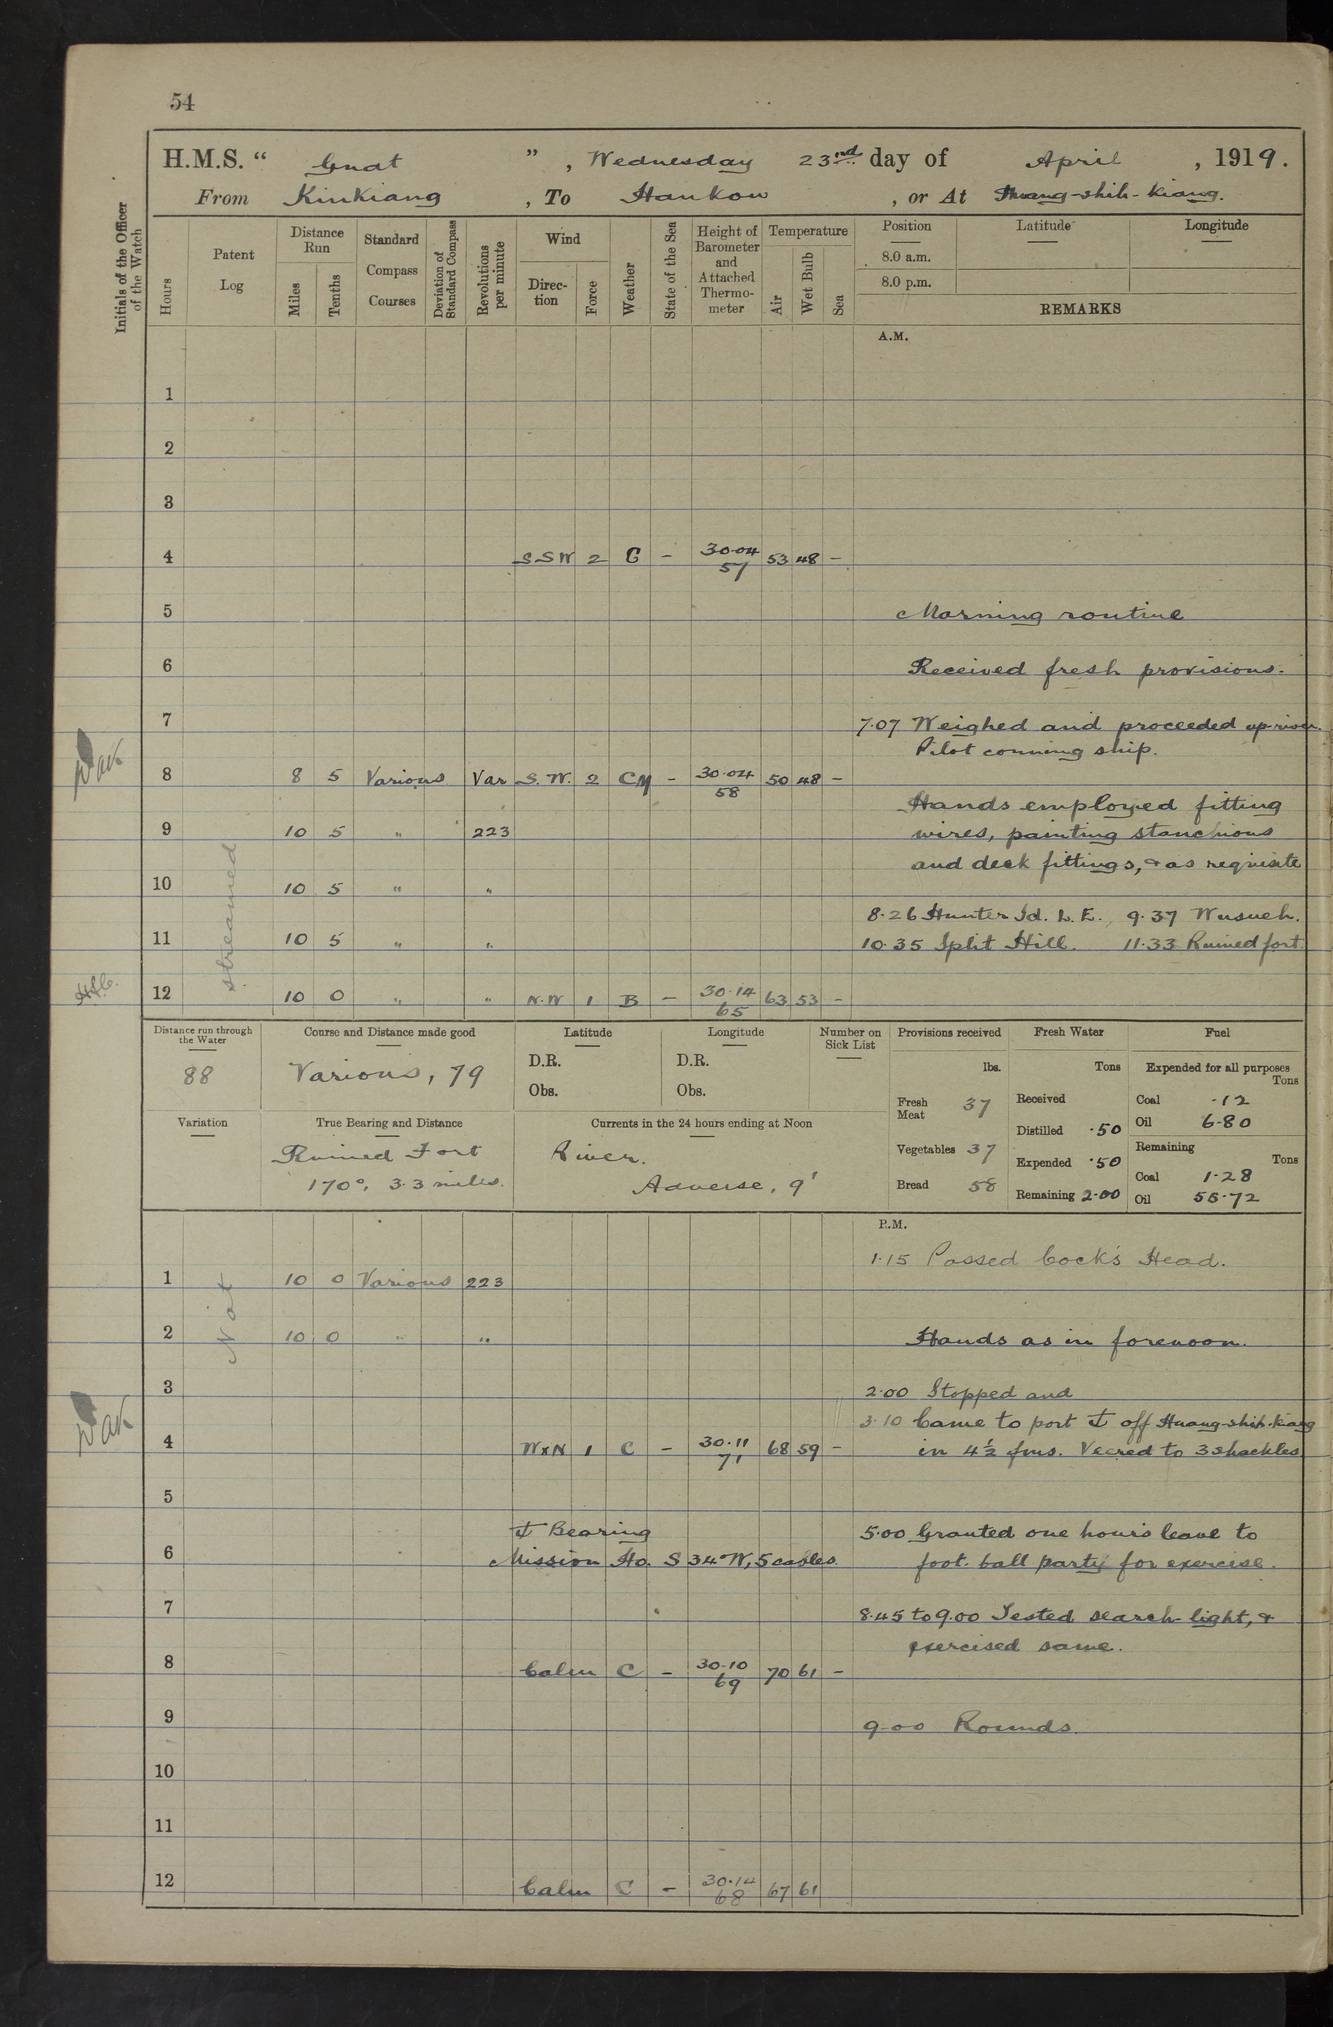 54
H.M.S. “ Gnat ” , Wednesday 23rd day of April , 1919.
From Kinkiang , To Hankow , or At Huang-shih-Kiang.
Initials of the Officer of the Watch
Hours
Patent Log
Distance Run
Miles
Tenths
Standard Compass Courses
Deviation of Standard Compass
Revolutions per minute
Wind
Direction
Force
Weather
State of the Sea
Height of Barometer and Attached Thermometer
Temperature
Air
Wet Bulb
Sea
Position Latitude Longitude
8.0 a.m.
8.0 p.m.
REMARKS
A.M.
1
2
3
4 S S W 2 C - 30.04 57 53 48 -
5 Morning routine
6 Received fresh provisions.
7 7.07 Weighed and proceeded up river.
Pilot conning ship.
8 8 5 Various Var S.W. 2 CM - 30.04 58 50 48 -
Hands employed fitting
9 10 5 " 223 wires, painting stanchions
and deck fittings, & as requisite
10 10 5 " "
8.26 Hunter Id. L.E., 9.37 Wusueh.
11 10 5 " " 10.35 Split Hill. 11.33 Ruined fort.
12 10 0 " " N.W 1 B - 30.14 65 63 53 -
streamed
Distance run through the Water
88
Course and Distance made good
Various, 79
Latitude
D.R.
Obs.
Longitude
D.R.
Obs.
Number on Sick List
Provisions received
lbs.
Fresh Meat 37
Vegetables 37
Bread 58
Fresh Water
Tons
Received
Distilled .50
Expended .50
Remaining 2.00
Fuel
Expended for all purposes
Tons
Coal .12
Oil 6.80
Remaining
Tons
Coal 1.28
Oil 55.72
Variation
True Bearing and Distance
Ruined Fort
170°, 3.3 miles.
Currents in the 24 hours ending at Noon
River.
Adverse, 9'
P.M.
1.15 Passed Cock's Head.
1 10 0 Various 223
Not
2 10 0 " " Hands as in forenoon.
3 2.00 Stopped and
3.10 Came to port ⚓ off Huang-shih-kiang
4 WxN 1 C - 30.11 71 68 59 - in 4½ fms. Veered to 3 shackles
5
⚓ Bearing 5.00 Granted one hour's leave to
6 Mission Ho. S 34° W, 5 cables. foot-ball party for exercise.
7 8.45 to 9.00 Tested search-light, &
exercised same.
8 Calm C - 30.10 69 70 61 -
9 9.00 Rounds.
10
11
12 Calm C - 30.14 68 67 61